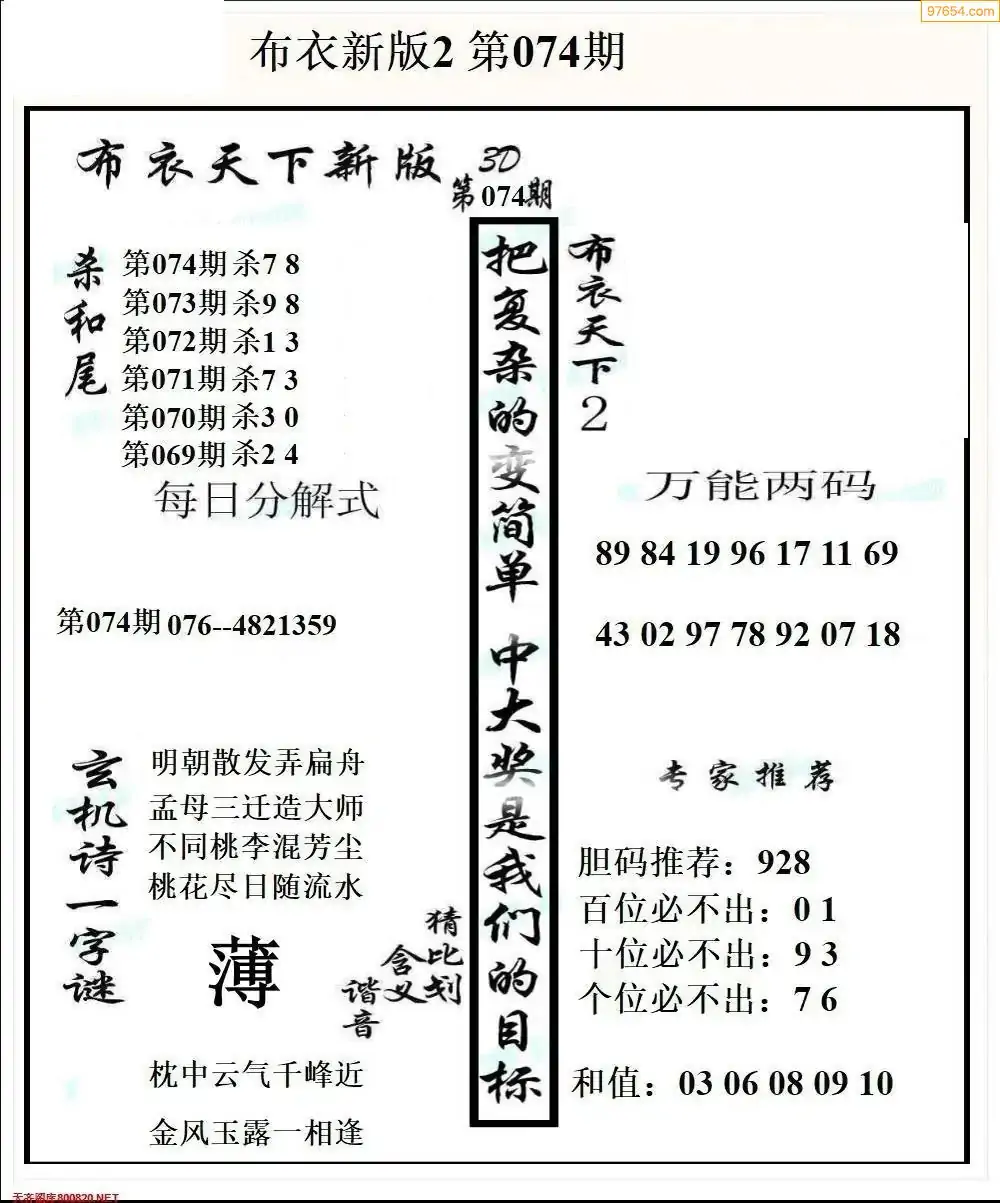 97654.com
布衣新版2 第074期
布衣天下新版
3D
第074期
杀和尾
第074期 杀7 8
第073期 杀9 8
第072期 杀1 3
第071期 杀7 3
第070期 杀3 0
第069期 杀2 4
每日分解式
第074期 076--4821359
玄机诗一字谜
明朝散发弄扁舟
孟母三迁造大师
不同桃李混芳尘
桃花尽日随流水
薄
猜比划
含义
谐音
枕中云气千峰近
金风玉露一相逢
把复杂的变简单 中大奖是我们的目标
布衣天下2
万能两码
89 84 19 96 17 11 69
43 02 97 78 92 07 18
专家推荐
胆码推荐：928
百位必不出：0 1
十位必不出：9 3
个位必不出：7 6
和值：03 06 08 09 10
天齐图库800820.NET